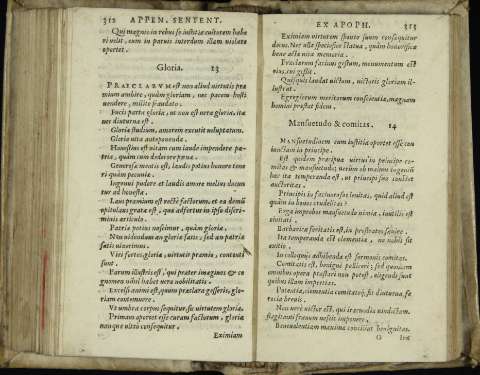 312 APPEN. SENTENT.
Qui magnis in rebus se iustitiæ cultorem habe
ri velit, eum in paruis interdum illam violare
oportet.
Gloria. 13
PRAECLARVM est non aliud virtutis præ
mium ambire, quàm gloriam, nec pacem hosti
vendere, milite fraudato.
Fuci parta gloria, nec vera est gloria, ita
nec diuturna est.
Gloria studium, amorem excutit voluptatum.
Gloria vita anteponenda.
Honestius est vitam cum laude impendere pa-
tria, quàm cum dedecore pœna.
Generosæ mentis est, laudis potius honore tene
ri quàm pecunia.
Ingenui pudore et laudis amore melius ducun
tur ad honesta.
Laus præmium est rectè factorum, et ea demū
opitulans grata est, quæ adfertur in ipso discri-
minis articulo.
Patriæ potius nascimur, quàm gloria.
Non viuendum an gloriæ satis, sed an patriæ
satis vixerimus.
Viri fortes, gloria, virtutis præmio, contenti
sunt.
Parum illustris est, qui præter imagines & co
gnomen nihil habet vera nobilitatis.
Excelsi animi est, quum præclara gesseris, glo-
riam contemnere.
Vt vmbra corpus sequitur, sic virtutem gloria.
Primùm oportet esse curam factorum, gloria
neque vltrò consequitur.
Eximiam
EX APOPH. 313
Eximiam virtutem sponte suam consequitur
decus. Nec vlla speciosior statua, quàm honorifica
bene acta vitæ memoria.
Præclarum facinus gestum, monumentum est
eius, qui gessit.
Quisquis laudat victum, victoris gloriam il-
lustrat.
Egregiorum meritorum conscientia, magnam
homini præstat fidem.
Mansuetudo & comitas. 14
MANSuetudinem cum iustitia oportet esse con
iunctam in principe.
Est quidem præcipua virtus in principe co-
mitas & mansuetudo; verùm ob malorum ingenia
hæc ita temperanda est, ut principi sua constet
auctoritas.
Principis in facinorosos lenitas, quid aliud est
quàm in bonos crudelitas?
Erga improbos mansuetudo nimia, inutilis est
ciuitati.
Barbaricæ feritatis est, in prostratos sæuire.
Ita temperanda est clementia, ne nobis sit
exitio.
In colloquiis adhibenda est sermonis comitas.
Comitatis est, benignè polliceri; sed quoniam
omnibus opera præstari non potest, eligendi sunt
quibus illam impertias.
Potentia, clementia comitatáq; sit diuturna, se-
cùs breuis.
Non verè victor est, qui iracundia vindictam-
sitæ gestienti frœnum nescit imponere.
Beneuolentiam maximè conciliat benignitas.
O Ira